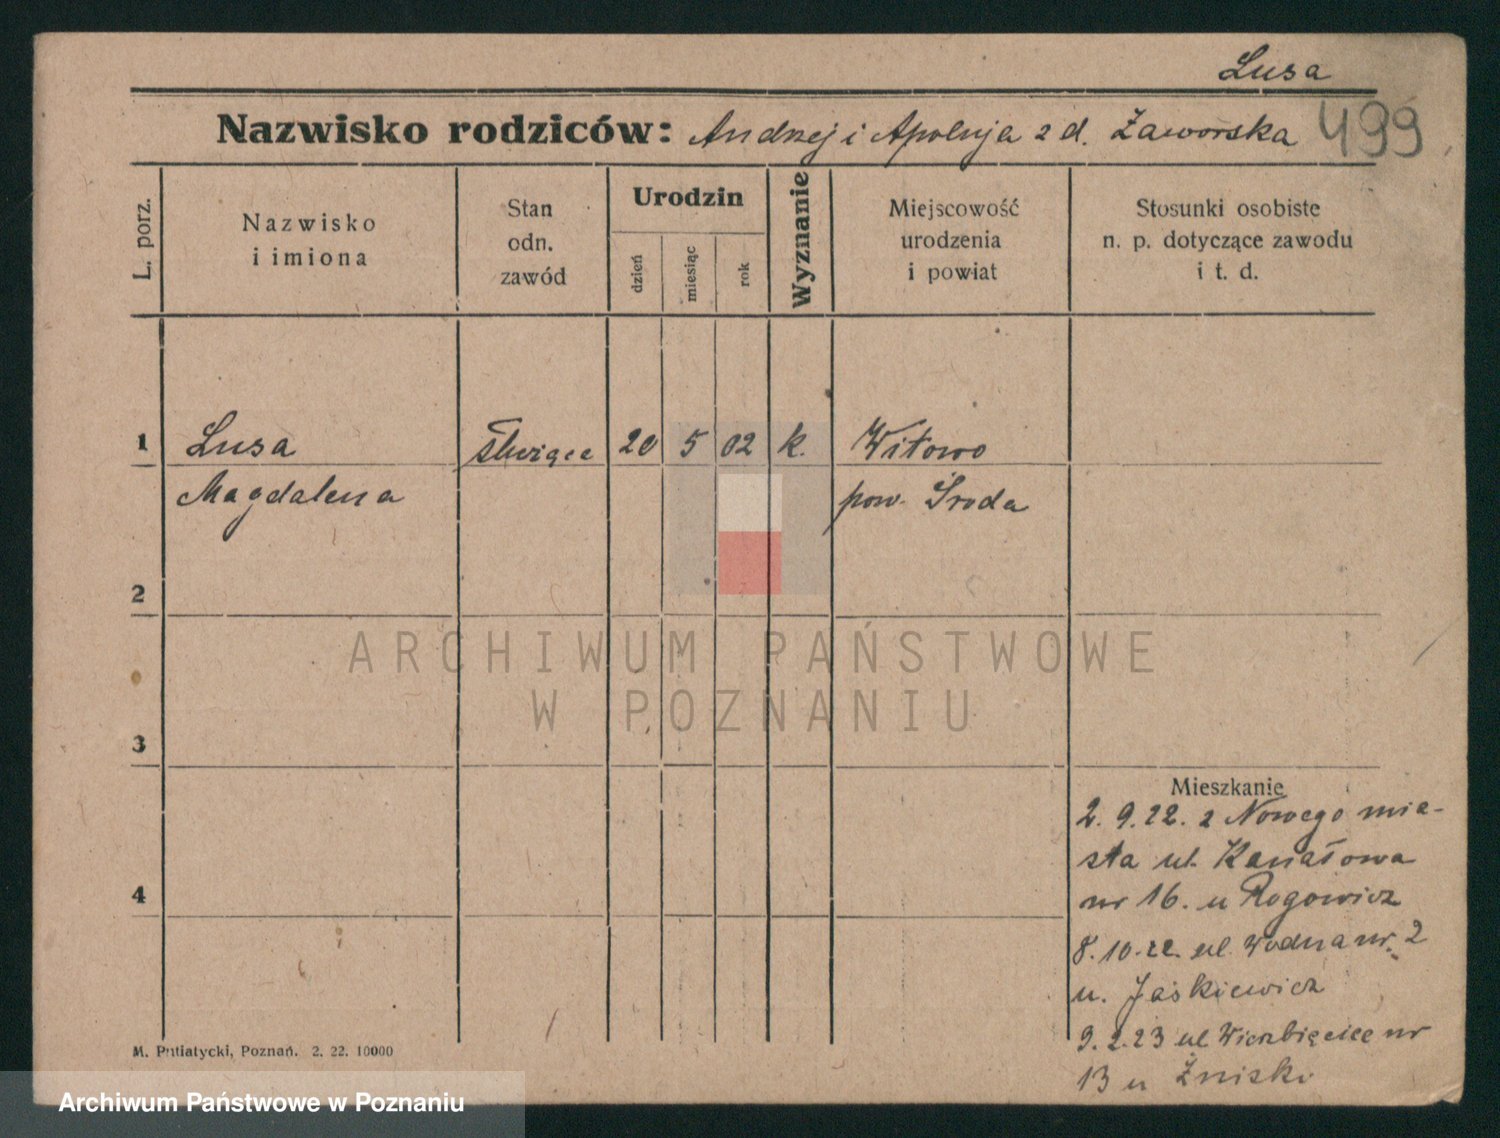 Lusa
Nazwisko rodziców: Andrzej i Apolinja z d. Zaworska 499
L. porz.
Nazwisko
i imiona
Stan
odn.
zawód
Urodzin
dzień
miesiąc
rok
Wyznanie
Miejscowość
urodzenia
i powiat
Stosunki osobiste
n. p. dotyczące zawodu
i t. d.
1 Lusa służąca 20 5 02 k. Witowo
Magdalena pow. Środa
2
ARCHIWUM PAŃSTWOWE
W POZNANIU
3
Mieszkanie
2. 9. 22. z Nowego mia-
sta ul. Kanałowa
nr 16. u Rogowicz
4
8. 10. 22. ul. Wodna nr. 2
u. Jaśkiewicz
9. 2. 23 ul Wierzbięcice nr
13 u
M. Putiatycki, Poznań. 2. 22. 10000
Archiwum Państwowe w Poznaniu